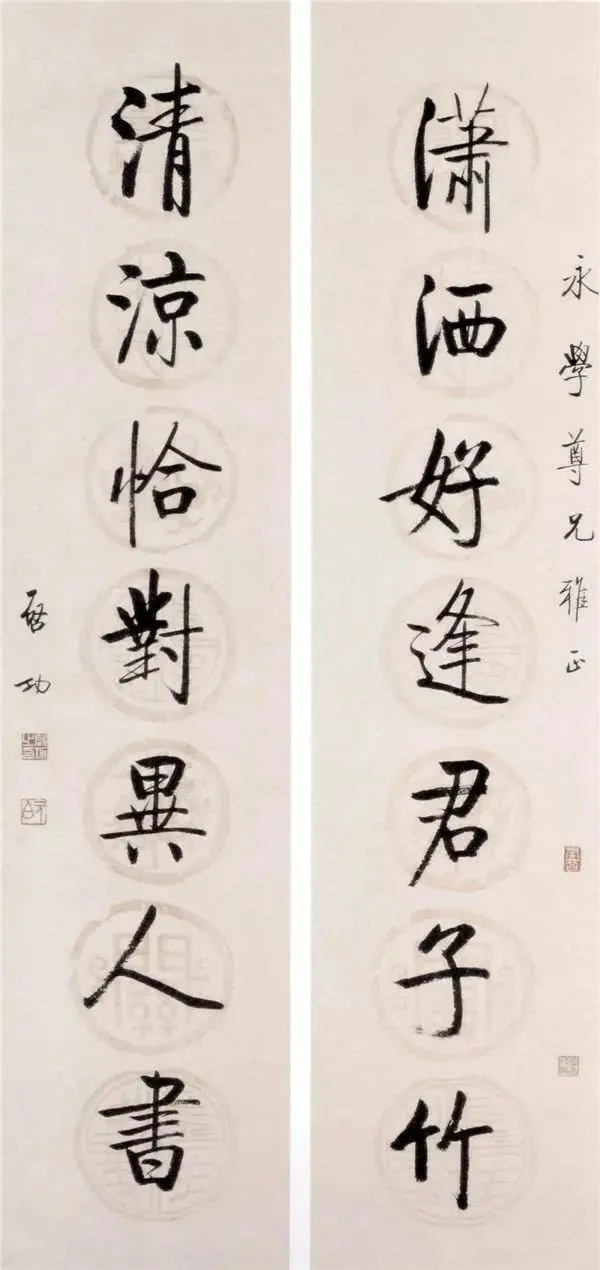 永學尊兄雅正
潇洒好逢君子竹
清涼恰對異人書
啓功